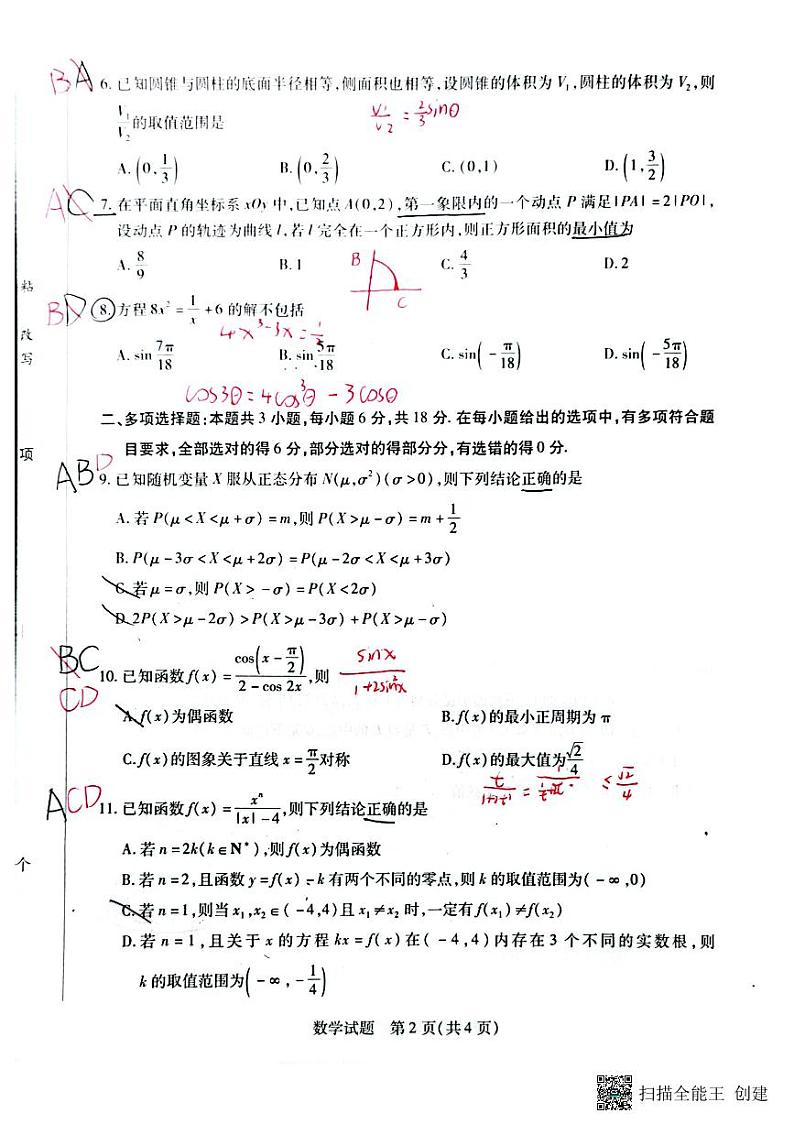 BA 6. 已知圆锥与圆柱的底面半径相等,侧面积也相等,设圆锥的体积为 V₁,圆柱的体积为 V₂,则
V₁/V₂ 的取值范围是 V₁/V₂ = 2/3 sinθ
A. (0, 1/3) B. (0, 2/3) C. (0,1) D. (1, 3/2)
A C 7. 在平面直角坐标系 xOy 中,已知点 A(0,2),第一象限内的一个动点 P 满足|PA| = 2|PO|,
设动点 P 的轨迹为曲线 l,若 l 完全在一个正方形内,则正方形面积的最小值为
A. 8/9 B. 1 C. 4/3 D. 2
B C
粘
BD 8. 方程 8x² = 1/x + 6 的解不包括
4x³-3x = 1/2
改
写
A. sin 7π/18 B. sin 5π/18 C. sin(-π/18) D. sin(-5π/18)
cos3θ = 4cos³θ - 3cosθ
二、多项选择题:本题共 3 小题,每小题 6 分,共 18 分. 在每小题给出的选项中,有多项符合题
目要求,全部选对的得 6 分,部分选对的得部分分,有选错的得 0 分.
项
ABD 9. 已知随机变量 X 服从正态分布 N(μ,σ²)(σ>0),则下列结论正确的是
A. 若 P(μ<X<μ+σ) = m,则 P(X>μ-σ) = m + 1/2
B. P(μ-3σ<X<μ+2σ) = P(μ-2σ<X<μ+3σ)
C. 若 μ=σ,则 P(X>-σ) = P(X<2σ)
D. 2P(X>μ-2σ) > P(X>μ-3σ) + P(X>μ-σ)
BC
CD
10. 已知函数 f(x) = cos(x-π/2)/(2-cos 2x),则 sinx/(1+2sin²x)
A. f(x)为偶函数 B. f(x)的最小正周期为 π
C. f(x)的图象关于直线 x = π/2 对称 D. f(x)的最大值为 √2/4
t/(1+2t²) = 1/(1/t+2t) ≤ √2/4
ACD 11. 已知函数 f(x) = xⁿ/(|x|-4),则下列结论正确的是
A. 若 n=2k(k∈N*),则 f(x)为偶函数
个
B. 若 n=2,且函数 y=f(x)-k 有两个不同的零点,则 k 的取值范围为(-∞,0)
C. 若 n=1,则当 x₁,x₂∈(-4,4)且 x₁≠x₂ 时,一定有 f(x₁)≠f(x₂)
D. 若 n=1,且关于 x 的方程 kx=f(x)在(-4,4)内存在 3 个不同的实数根,则
k 的取值范围为(-∞, -1/4)
数学试题 第 2 页(共 4 页)
扫描全能王 创建